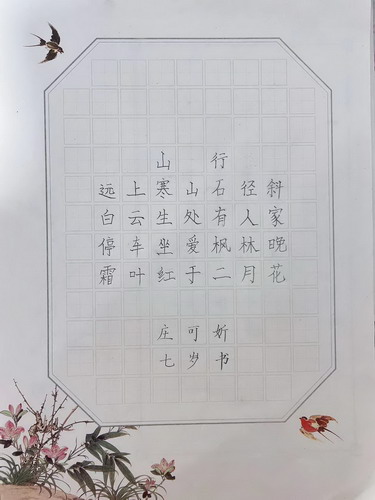 山行
远上寒山石径斜
白云生处有人家
停车坐爱枫林晚
霜叶红于二月花
庄可妡
七岁书